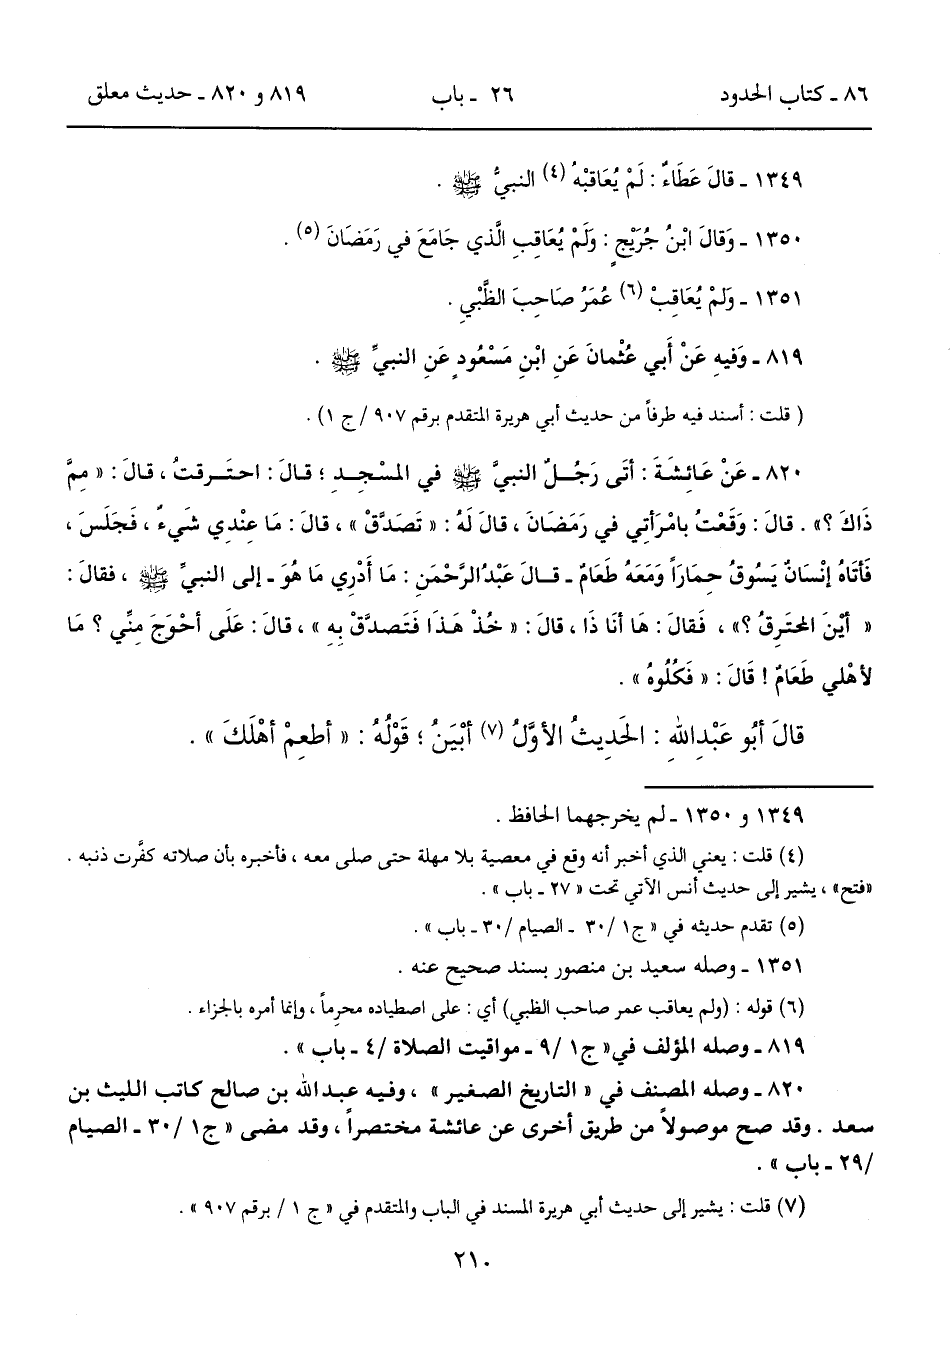 ٨٦ ـ كتاب الحدود ٢٦ ـ باب ٨١٩ و ٨٢٠ ـ حديث معلق
١٣٤٩ ـ قالَ عَطَاءٌ : لَمْ يُعَاقبْهُ (٤) النبيُّ ﷺ .
١٣٥٠ ـ وَقالَ ابْنُ جُرَيْجٍ : وَلَمْ يُعَاقبِ الَّذي جَامَعَ في رَمَضَانَ (٥) .
١٣٥١ ـ وَلمْ يُعَاقِبْ (٦) عُمَرُ صَاحِبَ الظَّبْيِ .
٨١٩ ـ وَفيهِ عَنْ أَبي عُثْمانَ عَنِ ابْنِ مَسْعُودٍ عَنِ النبيِّ ﷺ .
( قلت : أسند فيه طرفاً من حديث أبي هريرة المتقدم برقم ٩٠٧ / ج ١) .
٨٢٠ ـ عَنْ عَائِشَةَ : أتَى رَجُلٌ النبيَّ ﷺ في المَسْجِدِ ؛ قالَ : احتَرقتُ ، قالَ : « مِمَّ
ذَاكَ ؟» . قالَ : وَقَعْتُ بامْرَأتِي في رَمَضَانَ ، قالَ لَهُ : « تَصَدَّقْ » ، قالَ : مَا عِنْدِي شَيءٌ ، فَجَلَسَ ،
فَأتَاهُ إنْسَانٌ يَسُوقُ حِمَاراً وَمَعَهُ طَعَامٌ ـ قالَ عَبْدُالرَّحْمَنِ : مَا أَدْرِي مَا هُوَ ـ إلى النبيِّ ﷺ ، فقالَ :
« أيْنَ المحتَرِقُ ؟» ، فَقالَ : هَا أنَا ذَا ، قالَ : « خُذْ هَذَا فَتَصدَّقْ بِهِ » ، قالَ : عَلَى أحْوَجَ مِنِّي ؟ مَا
لأهْلي طَعَامٌ ! قَالَ : « فَكُلُوهُ » .
قالَ أَبُو عَبْدِاللهِ : الحَدِيثُ الأوَّلُ (٧) أبْيَنُ ؛ قَوْلُهُ : « أطعِمْ أهْلَكَ » .
١٣٤٩ و ١٣٥٠ ـ لم يخرجهما الحافظ .
(٤) قلت : يعني الذي أخبر أنه وقع في معصية بلا مهلة حتى صلى معه ، فأخبره بأن صلاته كفَّرت ذنبه .
«فتح» ، يشير إلى حديث أنس الآتي تحت « ٢٧ ـ باب » .
(٥) تقدم حديثه في « ج١ /٣٠ ـ الصيام /٣٠ ـ باب » .
١٣٥١ ـ وصله سعيد بن منصور بسند صحيح عنه .
(٦) قوله : (ولم يعاقب عمر صاحب الظبي) أي : على اصطياده محرِماً ، وإنما أمره بالجزاء .
٨١٩ ـ وصله المؤلف في« ج١ /٩ ـ مواقيت الصلاة /٤ ـ باب » .
٨٢٠ ـ وصله المصنف في « التاريخ الصغير » ، وفيه عبدالله بن صالح كاتب الليث بن
سعد . وقد صح موصولاً من طريق أخرى عن عائشة مختصراً ، وقد مضى « ج١ /٣٠ ـ الصيام
/٢٩ ـ باب » .
(٧) قلت : يشير إلى حديث أبي هريرة المسند في الباب والمتقدم في « ج ١ / برقم ٩٠٧ » .
٢١٠